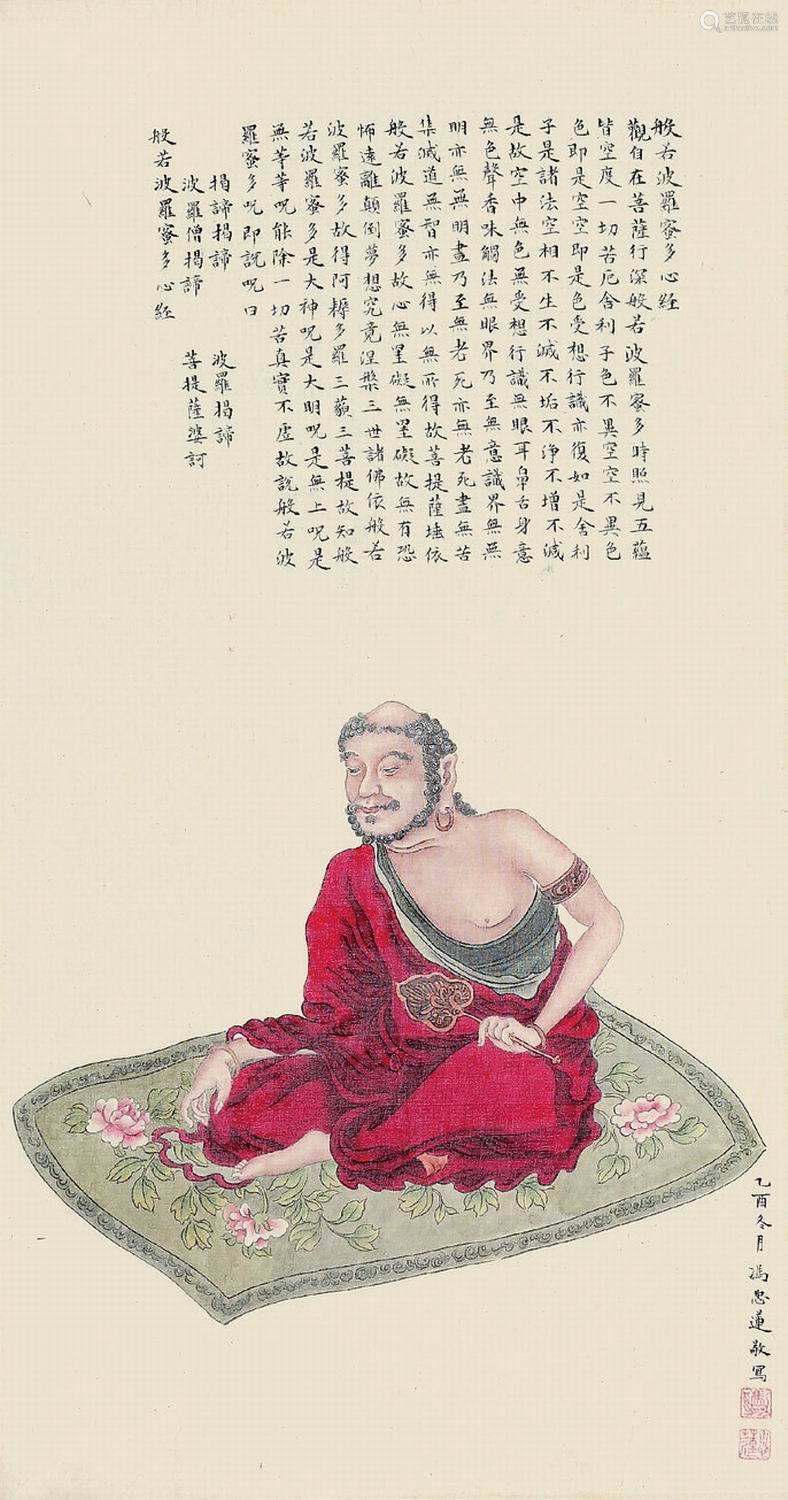 般若波羅蜜多心経
觀自在菩薩行深般若波羅蜜多時照見五蘊
皆空度一切苦厄舍利子色不異空空不異色
色即是空空即是色受想行識亦復如是舍利
子是諸法空相不生不滅不垢不淨不增不減
是故空中無色無受想行識無眼耳鼻舌身意
無色聲香味觸法無眼界乃至無意識界無無
明亦無無明盡乃至無老死亦無老死盡無苦
集滅道無智亦無得以無所得故菩提薩埵依
般若波羅蜜多故心無罣礙無罣礙故無有恐
怖遠離顛倒夢想究竟涅槃三世諸佛依般若
波羅蜜多故得阿耨多羅三藐三菩提故知般
若波羅蜜多是大神呪是大明呪是無上呪是
無等等呪能除一切苦真實不虛故說般若波
羅蜜多呪即說呪曰
揭諦揭諦 波羅揭諦
波羅僧揭諦 菩提薩婆訶
般若波羅蜜多心経
乙酉冬月 馮忠蓮敬寫
艺狐在线
artfoxlive.com